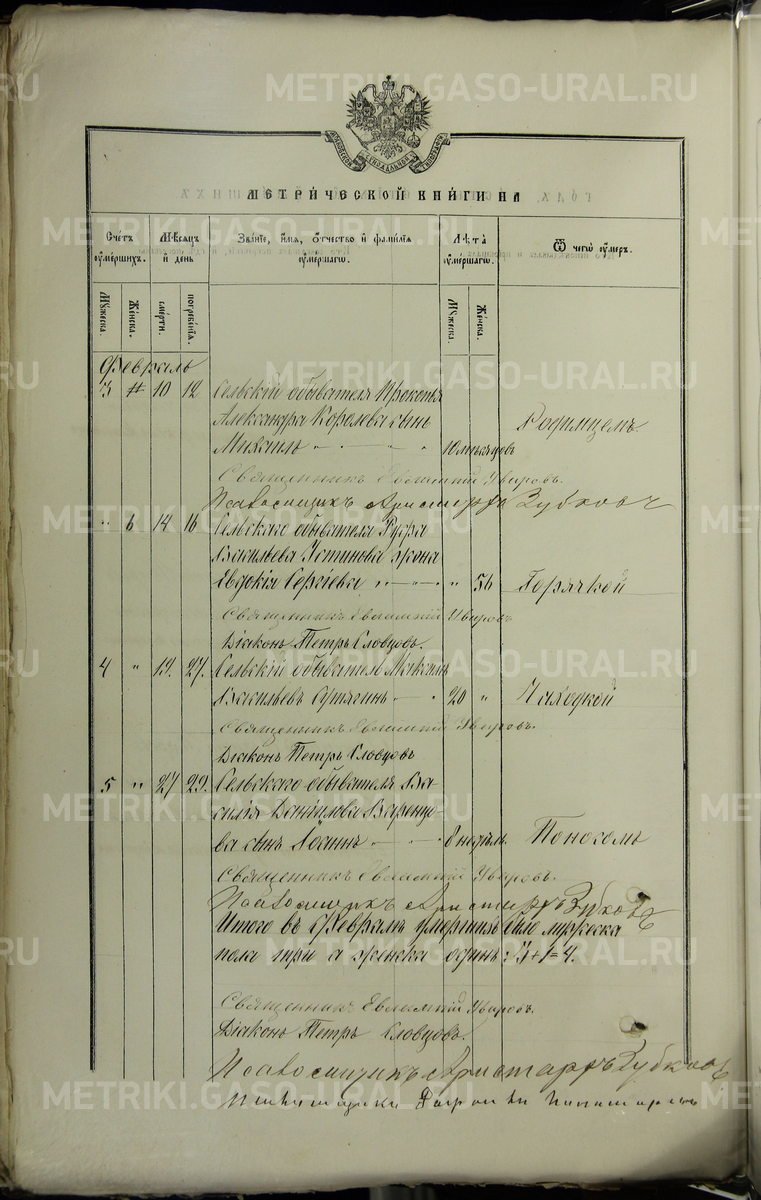 METRIKI.GASO-URAL.RU
МЕТРИ́ЧЕСКОЙ КНИ́ГИ НА
Сче́тъ оу҆ме́ршихъ.
Мѣ́сѧцъ и҆ де́нь
Зва́нїе, и҆́мѧ, ѻ҆́тчество и҆ фами́лїѧ оу҆ме́ршагѡ.
Лѣ́та оу҆ме́ршагѡ.
Ѿ чегѡ̀ оу҆́меръ.
Мꙋ́жеска.
Же́нска.
сме́рти.
погребе́нїѧ.
Мꙋ́жеска.
Же́нска.
Февраль
3 " 10 12 Сельскій обывателя Прокопья
Александра Королева сынъ Родимцемъ.
Михаилъ 10 мѣсяцовъ
Священникъ Евѳимій Уваровъ.
Псаломщикъ Аристархъ Зубковъ
" 6 14 16 Сельскаго обывателя Руфа
Васильева Устинова жена
Евдокія Сергіева " 56 Горячкой
Священникъ Евѳимій Уваровъ
Діаконъ Петръ Словцовъ.
4 " 19. 27. Сельскій обыватель
Васильевъ 20 " Чахоткой
Священникъ Евѳимій Уваровъ.
Діаконъ Петръ Словцовъ
5 " 27 29. Сельскаго обывателя Ва-
силія Данилова Варенцо-
ва сынъ Іоаннъ 8 недѣль. Поносомъ
Священникъ Евѳимій Уваровъ.
Псаломщикъ Аристархъ Зубковъ
Итого въ Февралѣ умершихъ было мужеска
пола три а женска одинъ: 3+1=4.
Священникъ Евѳимій Уваровъ.
Діаконъ Петръ Словцовъ.
Псаломщикъ Аристархъ Зубковъ